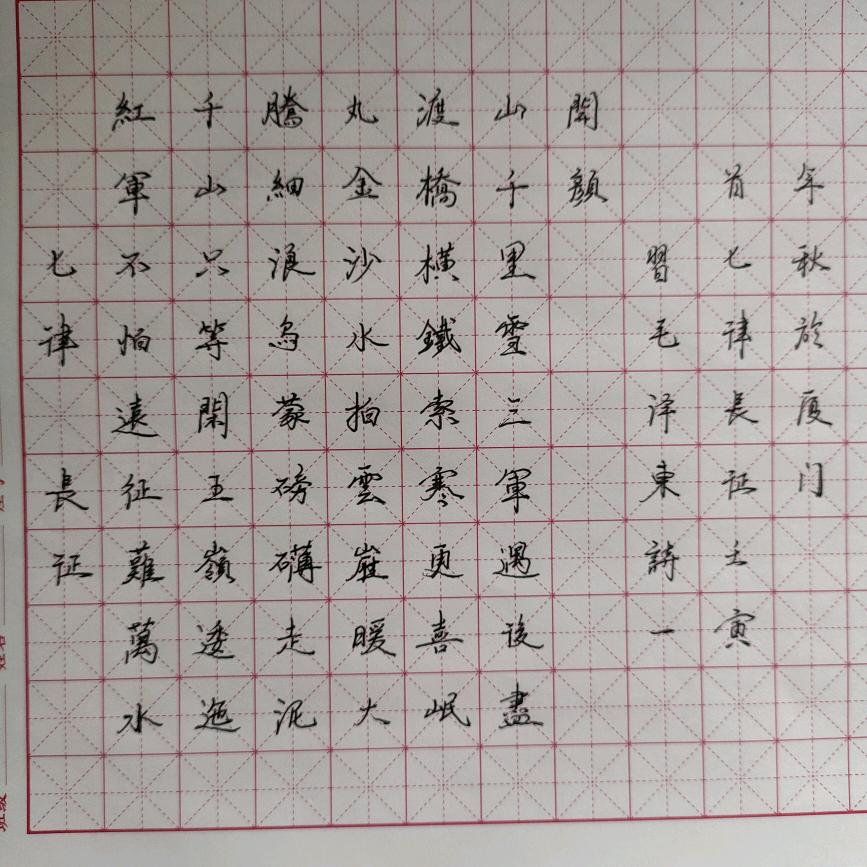 七律 長征
紅軍不怕遠征難萬水
千山只等閑五嶺逶迤
騰細浪烏蒙磅礴走泥
丸金沙水拍雲崖暖大
渡橋橫鐵索寒更喜岷
山千里雪三軍過後盡
開顏
習毛泽東詩一
首七律長征壬寅
年秋於厦门
班级
姓名